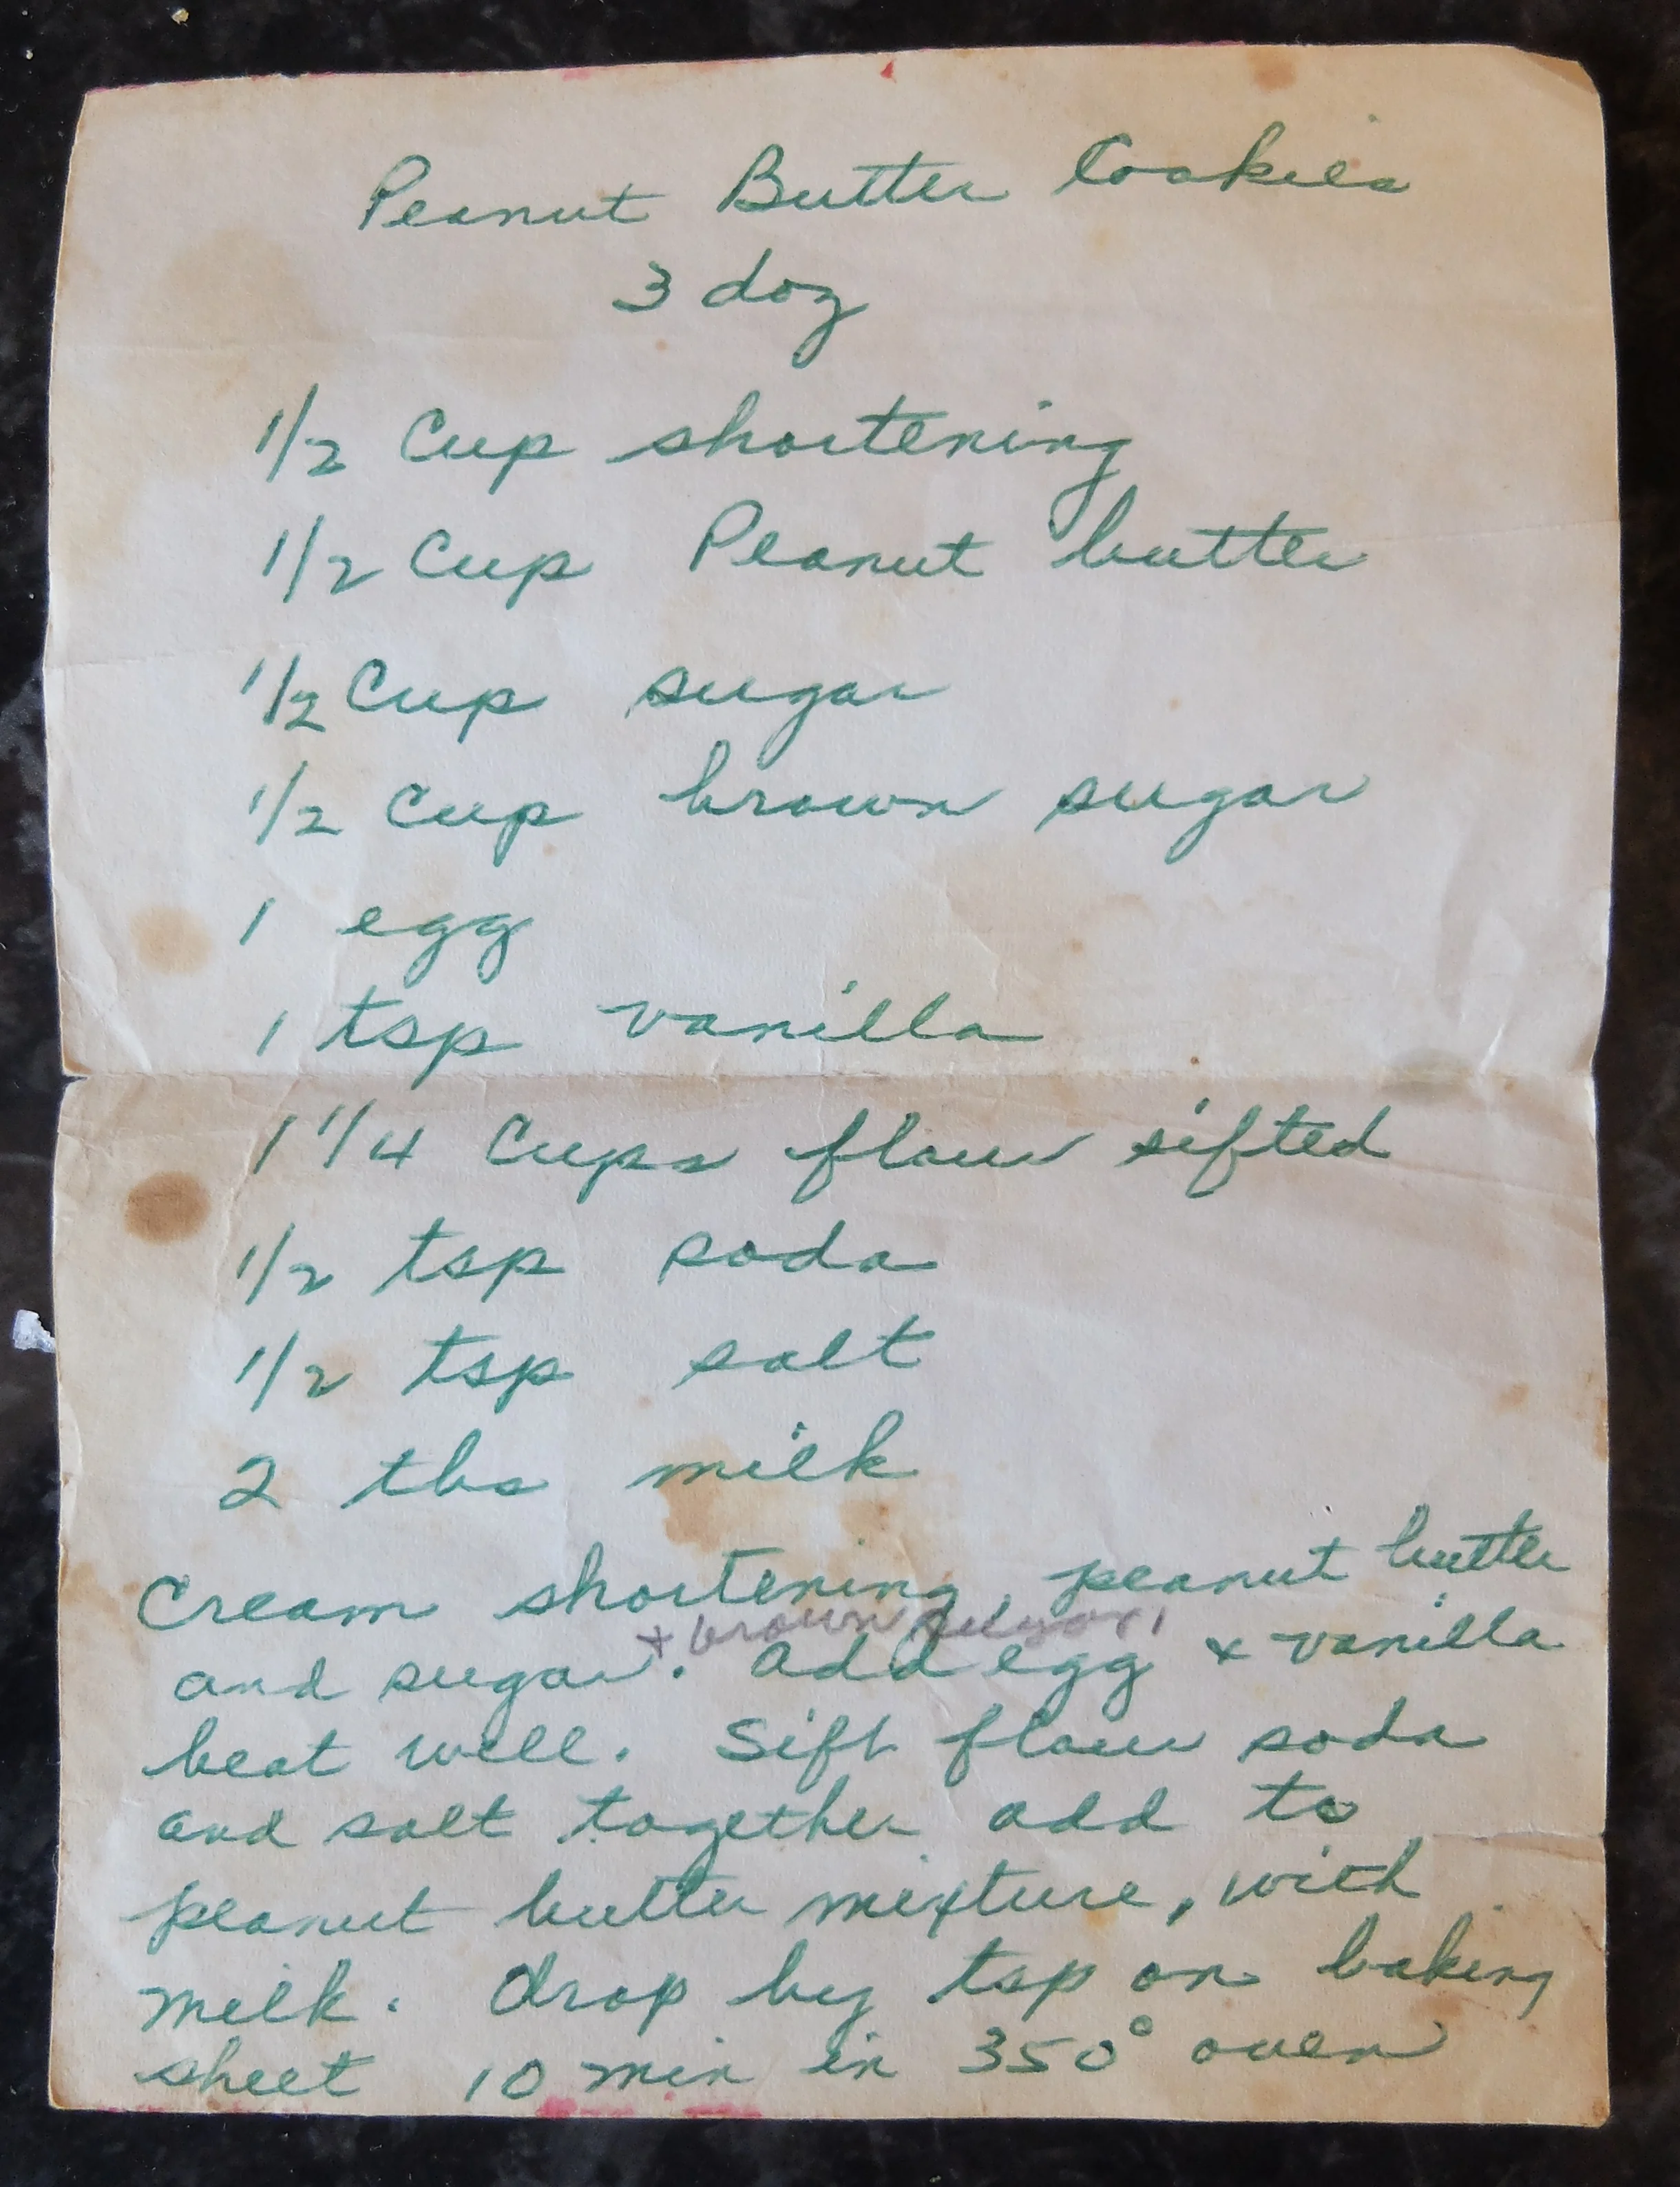 Peanut Butter Cookies
3 doz
1/2 Cup shortening
1/2 Cup Peanut butter
1/2 Cup sugar
1/2 Cup brown sugar
1 egg
1 tsp vanilla
1 1/4 Cups flour sifted
1/2 tsp soda
1/2 tsp salt
2 tbs milk
Cream shortening, peanut butter
+ brown sugar,
and sugar. Add egg & vanilla
beat well. Sift flour soda
and salt together add to
peanut butter mixture, with
milk. Drop by tsp on baking
sheet 10 min in 350° oven